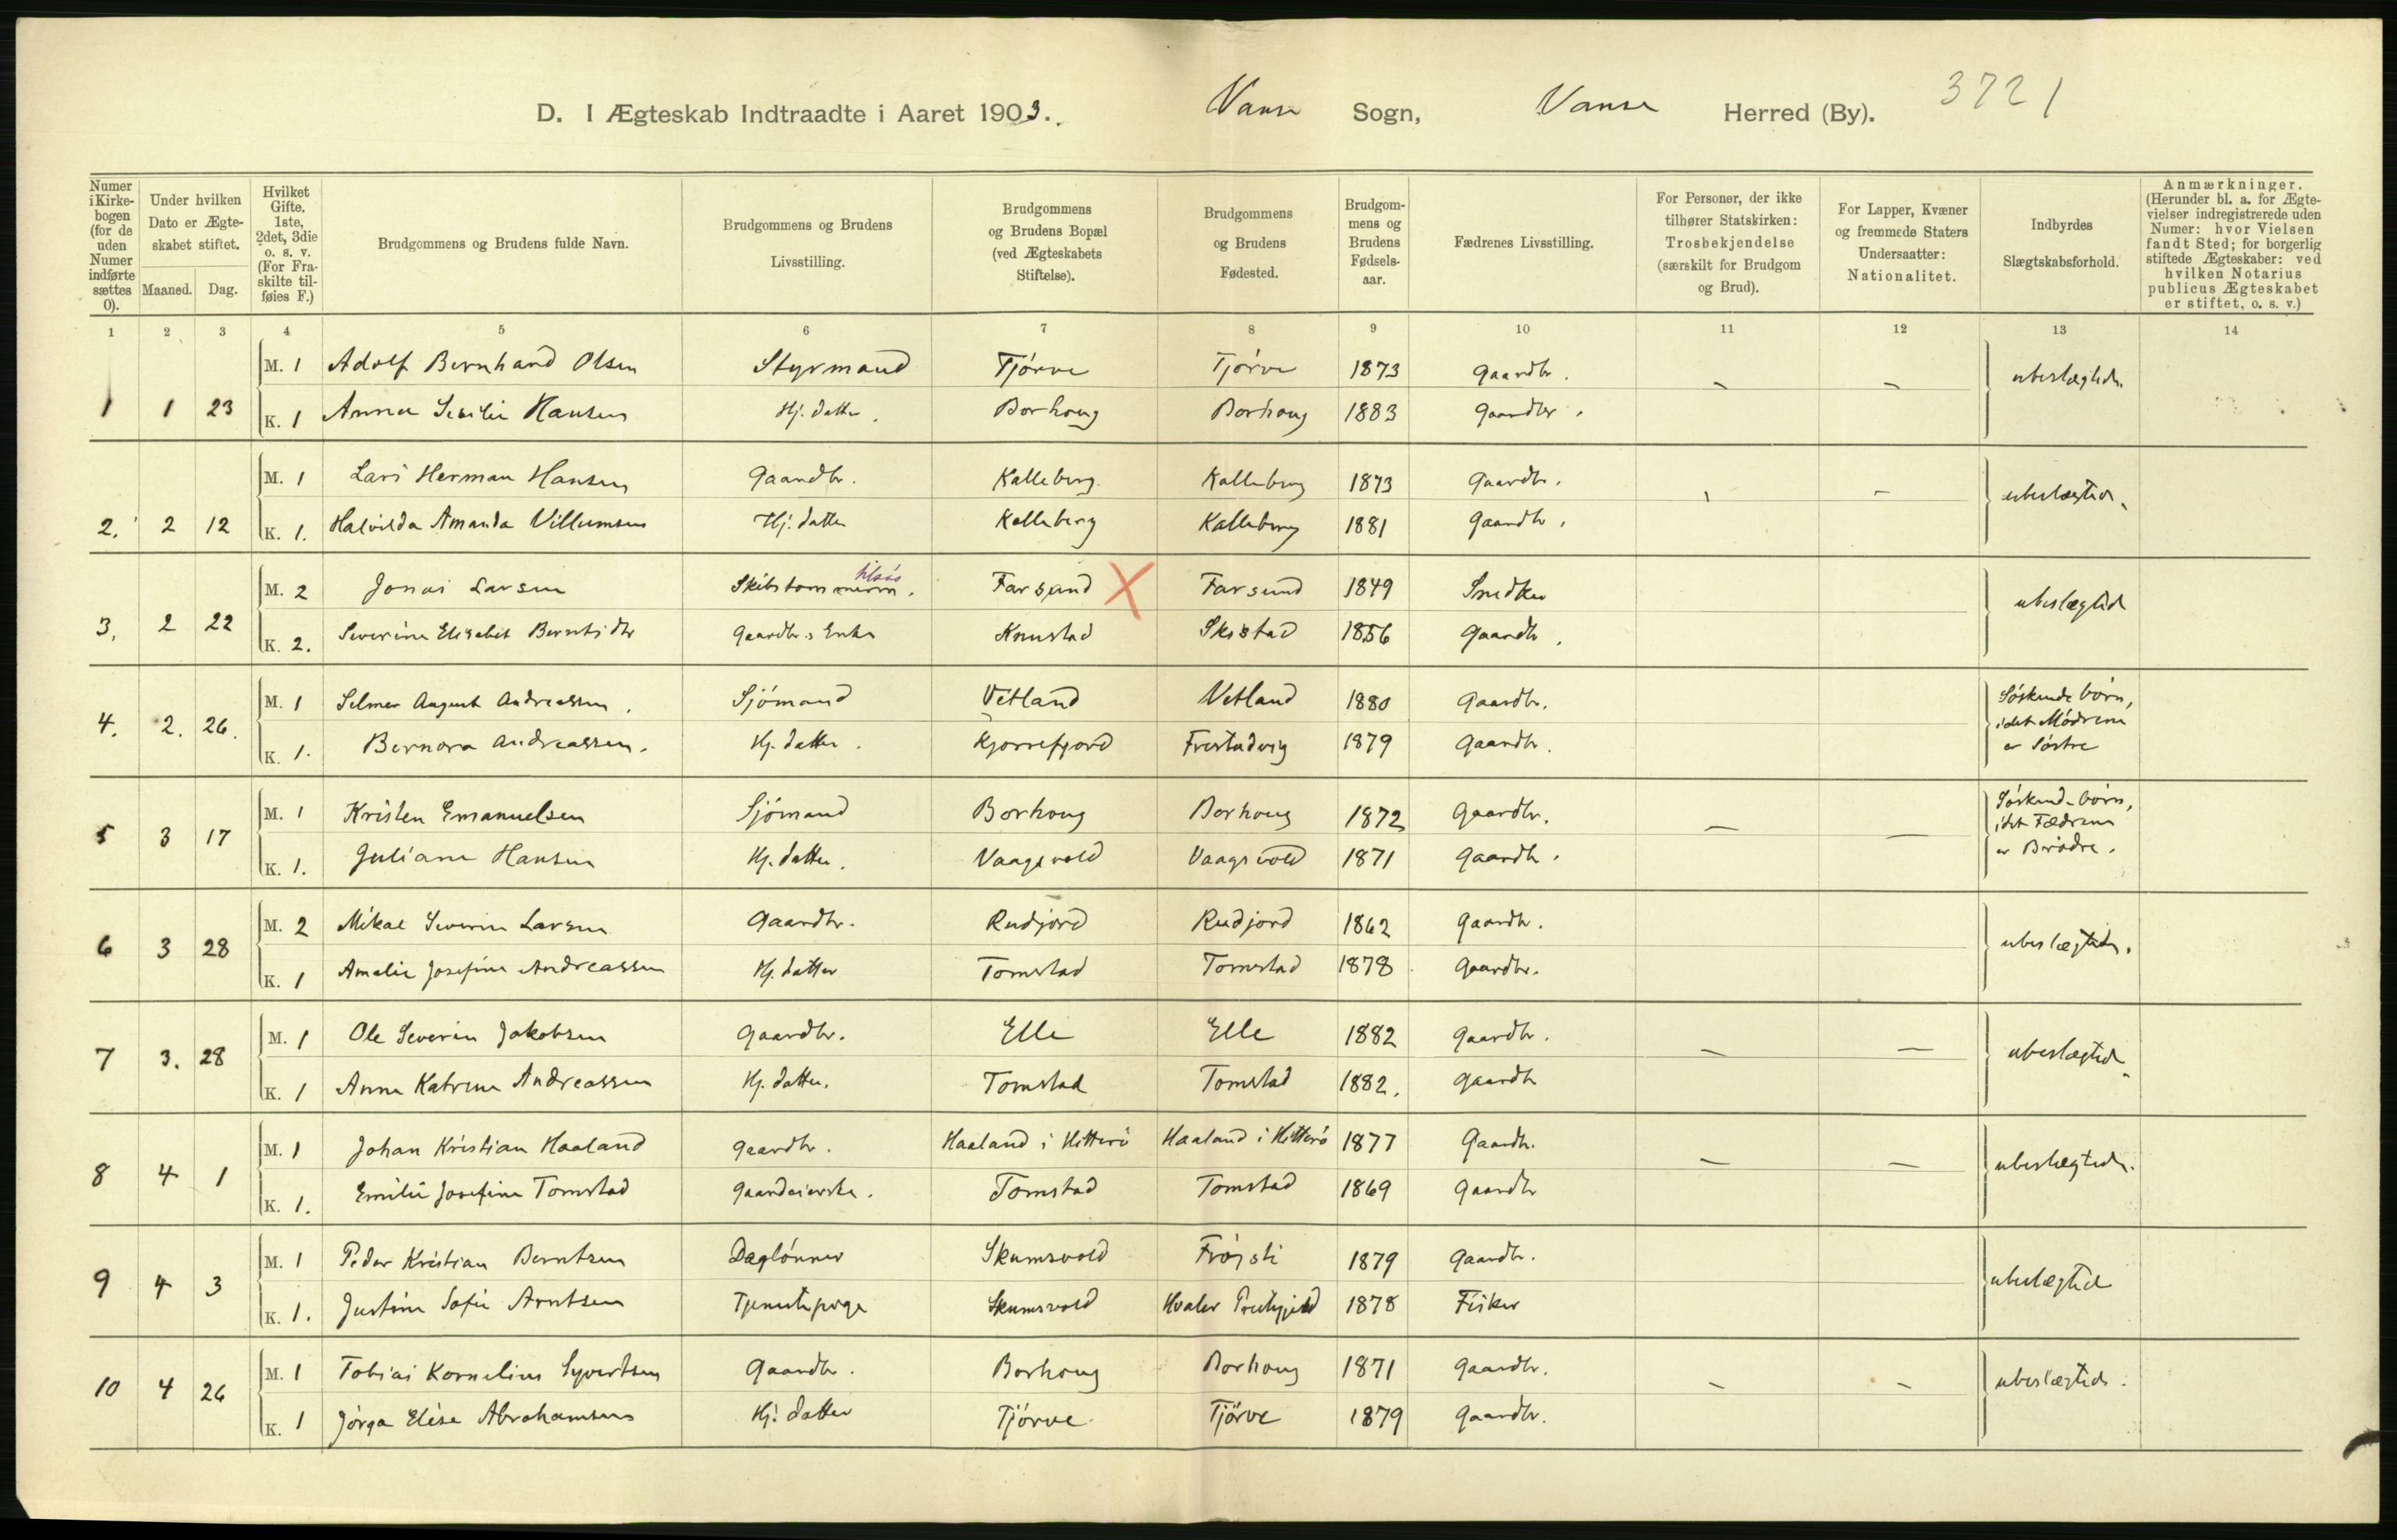 D. I Ægteskab Indtraadte i Aaret 1903. Vanse Sogn, Vanse Herred (By). 3721
Numer i Kirkebogen (for de uden Numer indførte sættes 0).
Under hvilken Dato er Ægteskabet stiftet.
Maaned. Dag.
Hvilket Gifte. 1ste, 2det, 3die o. s. v. (For Fraskilte tilføies F.)
Brudgommens og Brudens fulde Navn.
Brudgommens og Brudens Livsstilling.
Brudgommens og Brudens Bopæl (ved Ægteskabets Stiftelse).
Brudgommens og Brudens Fødested.
Brudgommens og Brudens Fødselsaar.
Fædrenes Livsstilling.
For Personer, der ikke tilhører Statskirken: Trosbekjendelse (særskilt for Brudgom og Brud).
For Lapper, Kvæner og fremmede Staters Undersaatter: Nationalitet.
Indbyrdes Slægtskabsforhold.
Anmærkninger. (Herunder bl. a. for Ægtevielser indregistrerede uden Numer: hvor Vielsen fandt Sted; for borgerlig stiftede Ægteskaber: ved hvilken Notarius publicus Ægteskabet er stiftet, o. s. v.)
1 2 3 4 5 6 7 8 9 10 11 12 13 14
M. 1 Adolf Bernhard Olsen Styrmand Tjørve Tjørve 1873 Gaardbr. – – ubeslægtede.
1 1 23 K. 1 Anna Secilie Hansen Hj. datter. Borhaug Borhaug 1883 Gaardbr.
M. 1 Lars Herman Hansen Gaardbr. Kalleberg. Kalleberg 1873 Gaardbr. – – ubeslægtede.
2. 2 12 K. 1. Halvilda Amanda Villumsen Hj. datter Kalleberg Kalleberg 1881 Gaardbr.
M. 2 Jonas Larsen Skibstømmerm. tilsøs Farsund X Farsund 1849 Snedker ubeslægtede
3. 2 22 K. 2. Severine Elisabet Berntsdtr Gaardbr.s Enke Knustad Skistad 1856 Gaardbr.
M. 1 Selmer August Andreassen. Sjømand Vetland Vetland 1880 Gaardbr. Søskendebørn,
idet Mødrene
4. 2. 26. K. 1. Bernora Andreassen. Hj. datter. Kjørrefjord Frestadvig 1879 Gaardbr. er Søstre
M. 1 Kristen Emanuelsen Sjømand Borhaug Borhaug 1872 Gaardbr. – – Søskendebørn,
idet Fædrene
5 3 17 K. 1. Juliane Hansen Hj. datter. Vaagsvold Vaagsvold 1871 Gaardbr. er Brødre.
M. 2 Mikal Severin Larsen Gaardbr. Rudjord Rudjord 1862 Gaardbr. ubeslægtede.
6 3 28 K. 1 Amalie Josefine Andreassen Hj. datter Tomstad Tomstad 1878 Gaardbr.
M. 1 Ole Severin Jakobsen Gaardbr. Elle Elle 1882 Gaardbr. – – ubeslægtede.
7 3. 28 K. 1 Anne Katrine Andreassen Hj. datter. Tomstad Tomstad 1882. Gaardbr
M. 1 Johan Kristian Haaland Gaardbr. Haaland i Hitterø Haaland i Hitterø 1877 Gaardbr. – – ubeslægtede.
8 4 1 K. 1. Emilie Josefine Tomstad Gaardeierske. Tomstad Tomstad 1869 Gaardbr
M. 1 Peder Kristian Berntsen Daglønner Skumsvold Frøjsti 1879 Gaardbr. ubeslægtede
9 4 3 K. 1. Justine Sofie Arntsen Tjenestepige Skumsvold Hvaler Prestegjeld 1878 Fisker
M. 1 Tobias Kornelius Syvertsen Gaardbr. Borhaug Borhaug 1871 Gaardbr. – – ubeslægtede.
10 4 26 K. 1 Jørga Elise Abrahamsen Hj. datter Tjørve Tjørve 1879 Gaardbr.